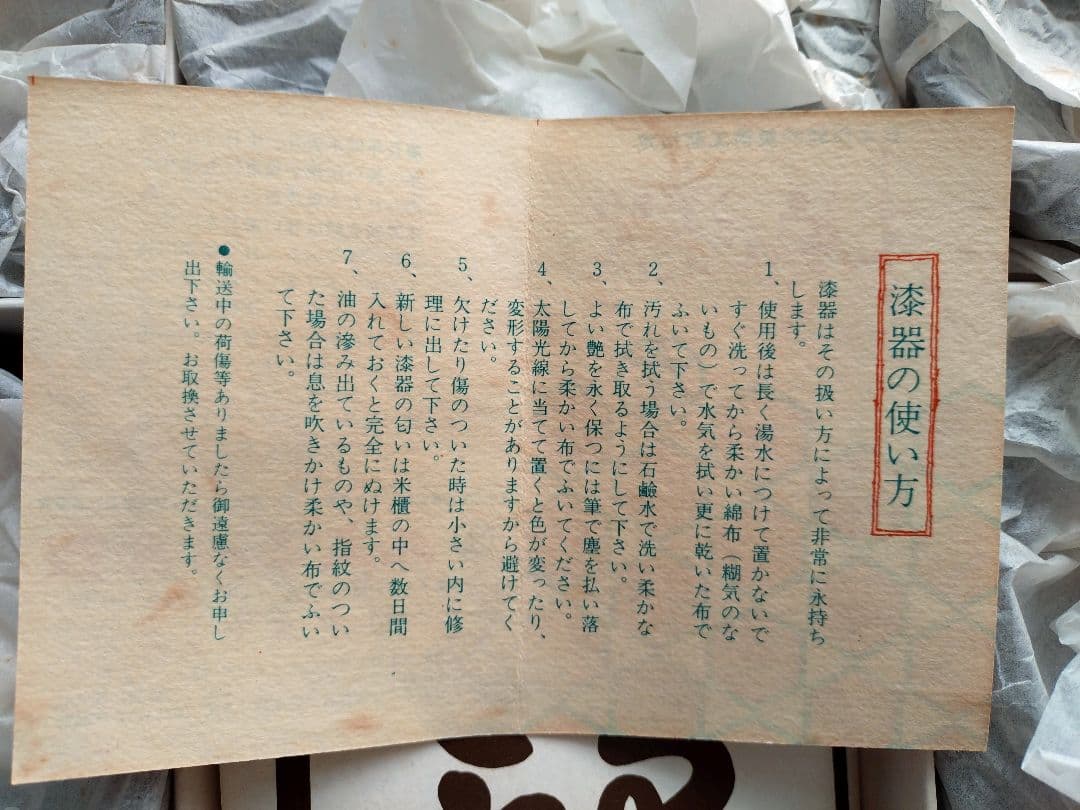 漆器の使い方
漆器はその扱い方によって非常に永持ち
します。
1、使用後は長く湯水につけて置かないで
すぐ洗ってから柔かい綿布（糊気のな
いもの）で水気を拭い更に乾いた布で
ふいて下さい。
2、汚れを拭う場合は石鹼水で洗い柔かな
布で拭き取るようにして下さい。
3、よい艶を永く保つには筆で塵を払い落
してから柔かい布でふいてください。
4、太陽光線に当てて置くと色が変ったり、
変形することがありますから避けてく
ださい。
5、欠けたり傷のついた時は小さい内に修
理に出して下さい。
6、新しい漆器の匂いは米櫃の中へ数日間
入れておくと完全にぬけます。
7、油の滲み出ているものや、指紋のつい
た場合は息を吹きかけ柔かい布でふい
て下さい。
●輸送中の荷傷等ありましたら御遠慮なくお申し
出下さい。お取換させていただきます。